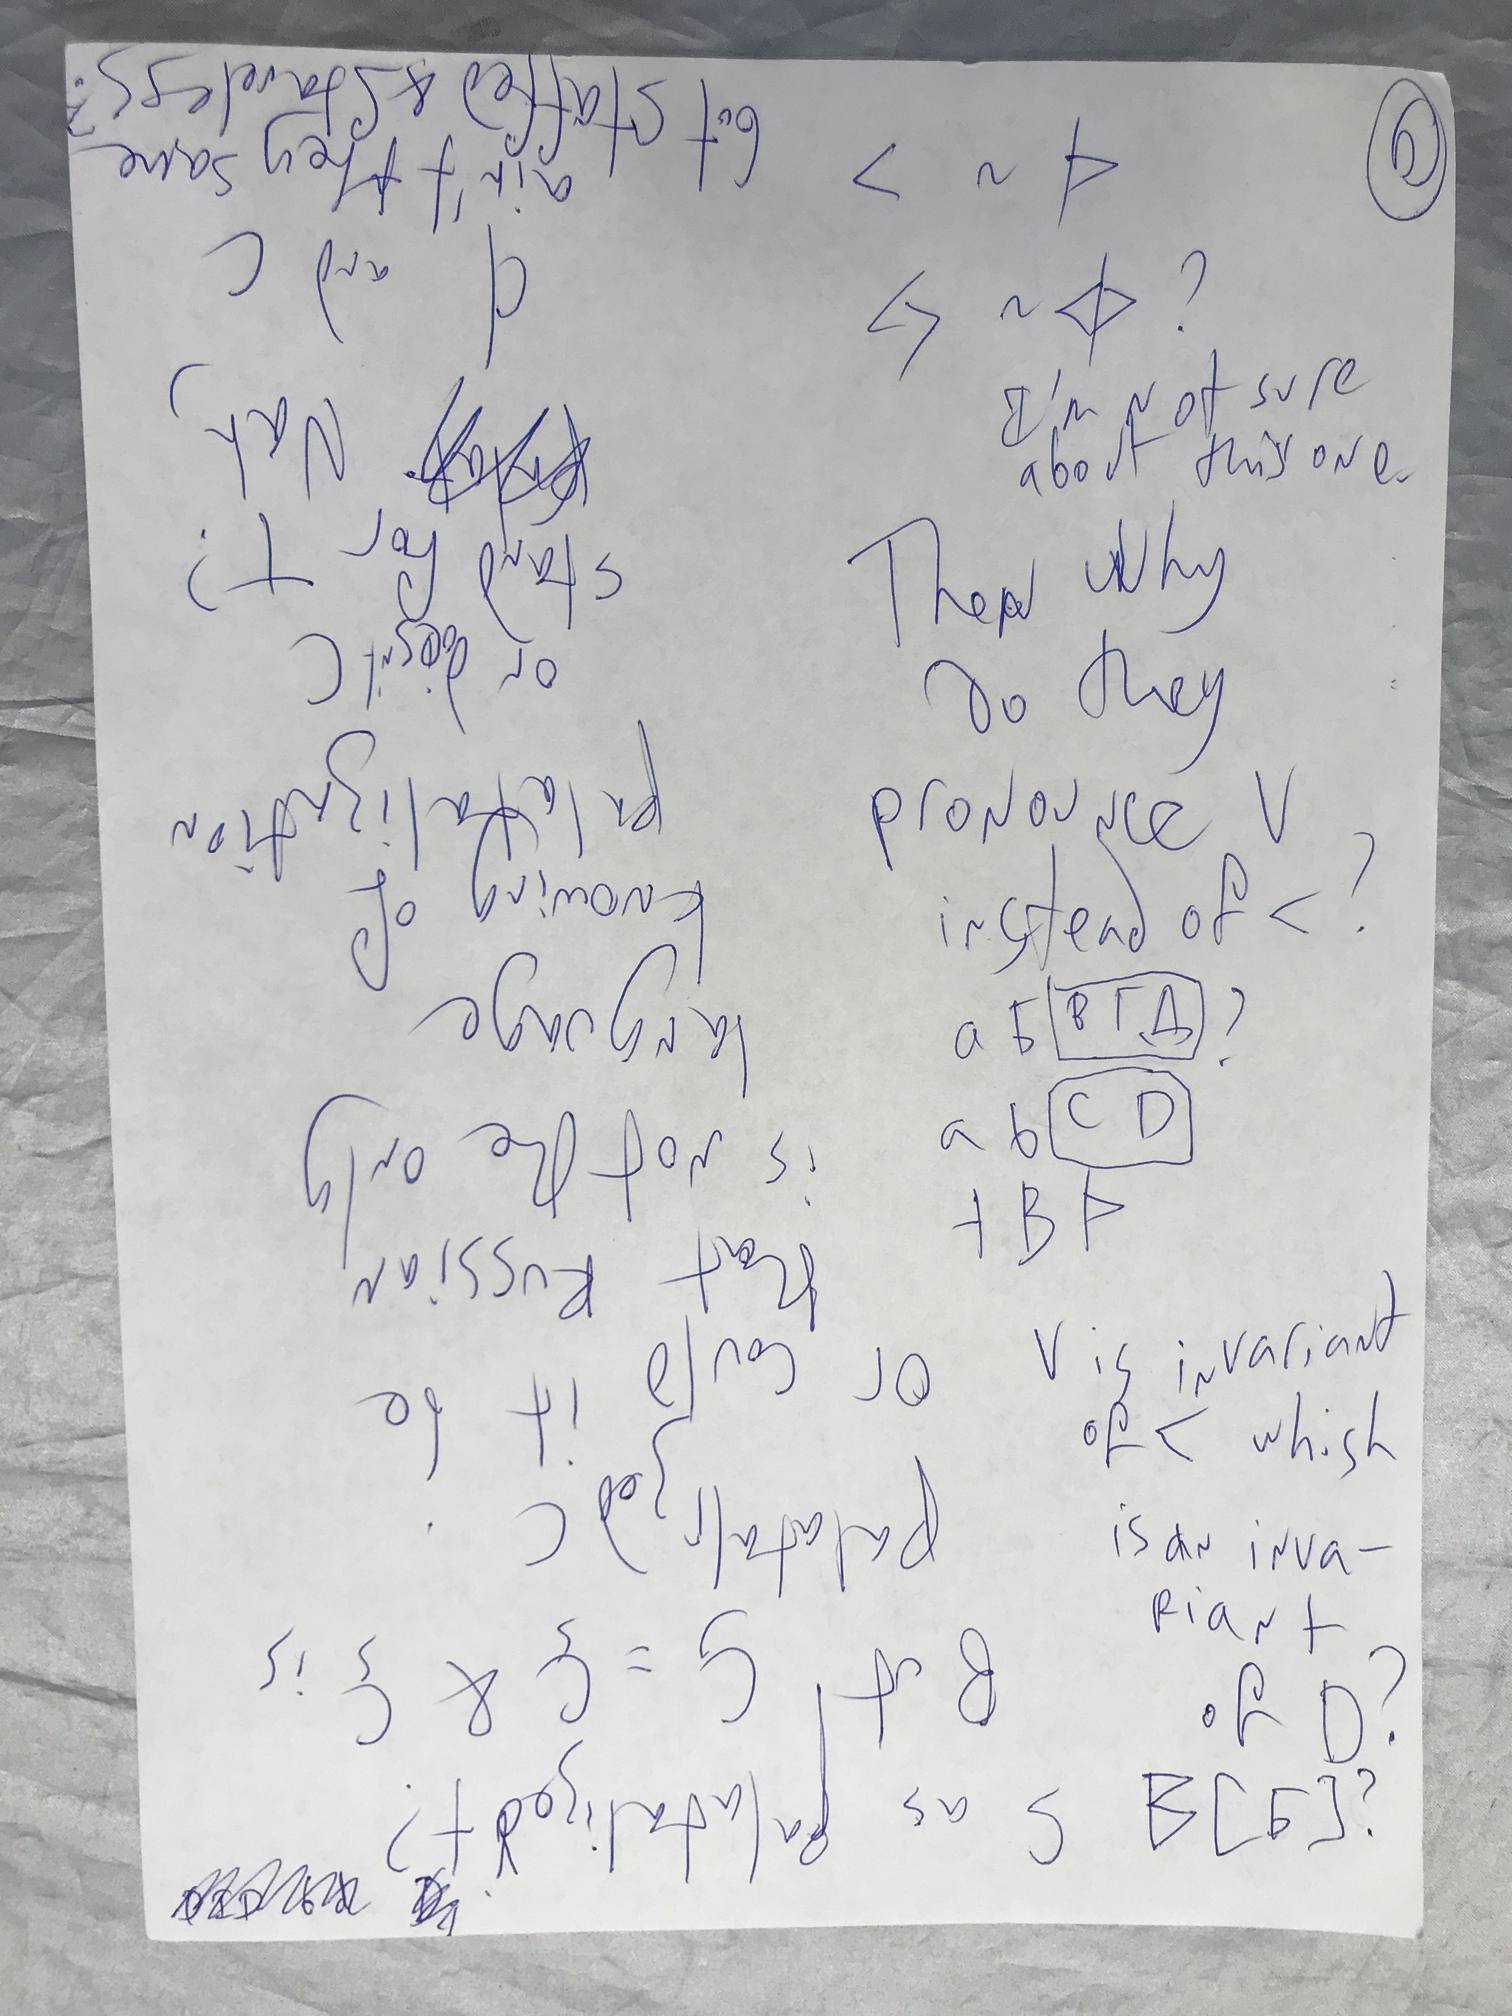 6
< ~ ᐅ
<> ~ ?
I'm not sure
about this one.
Then why
do they
pronounce V
instead of < ?
a Б В Г Д ?
a b C D
+ B ᐅ
V is invariant
of < whish
is an inva-
riant
of D?
B [Б]?
S as palatalized t?
But, ς = ξ & ξ is
palatalized C.
Or could it be
that Russian
is not the only
language
knowing of
palatalization
or doesn't C
stand for t?
Nah,
q and C
ain't they same
but staffed & staveless?